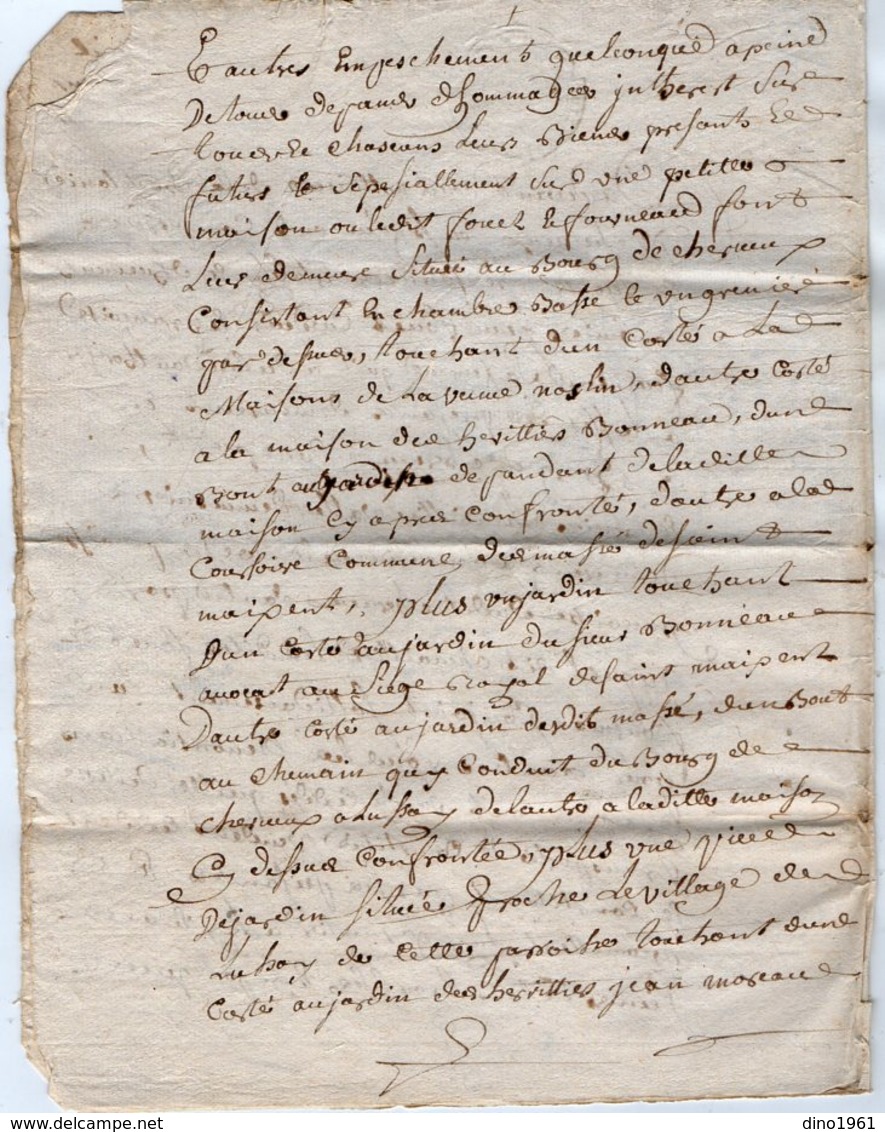 Et autres Empeschements quelconques a peine
De tous depans dhommages jntherest sur
tous Et Chascuns Leurs Biens presants Et
futurs Et Sepesiallement sur une petitte
maison ou ledit fouet Et fourneaud font
Leur demeure situee au Bourg de Cherveux
Consistant En chambre Basse Et un grenier
par dessus, touchant dun Costé a La
Maison de La veuve noslin, dautre costé
a la maison des heritiers Bonneau, dun
Bont au jardin depandant de laditte
maison Cy apres confronté, dautre a la
Coursoire Commune des massé de saint
maixent, plus un jardin touchant
Dun Costé au jardin du sieur Bonneau
avocat au Siege Royal de saint maixent
Dautre Costé au jardin desdits massé, dun Bout
au Chemain quy Conduit du Bourg de
Cherveux a Lussay de lautre a laditte maison
Cy dessus Confrontée, plus une piece
De jardin Située proche Le village de
Lussay de Cette parroisse touchant dun
Costé au jardin des heritiers jean moreau
delcampe.net
dino1961